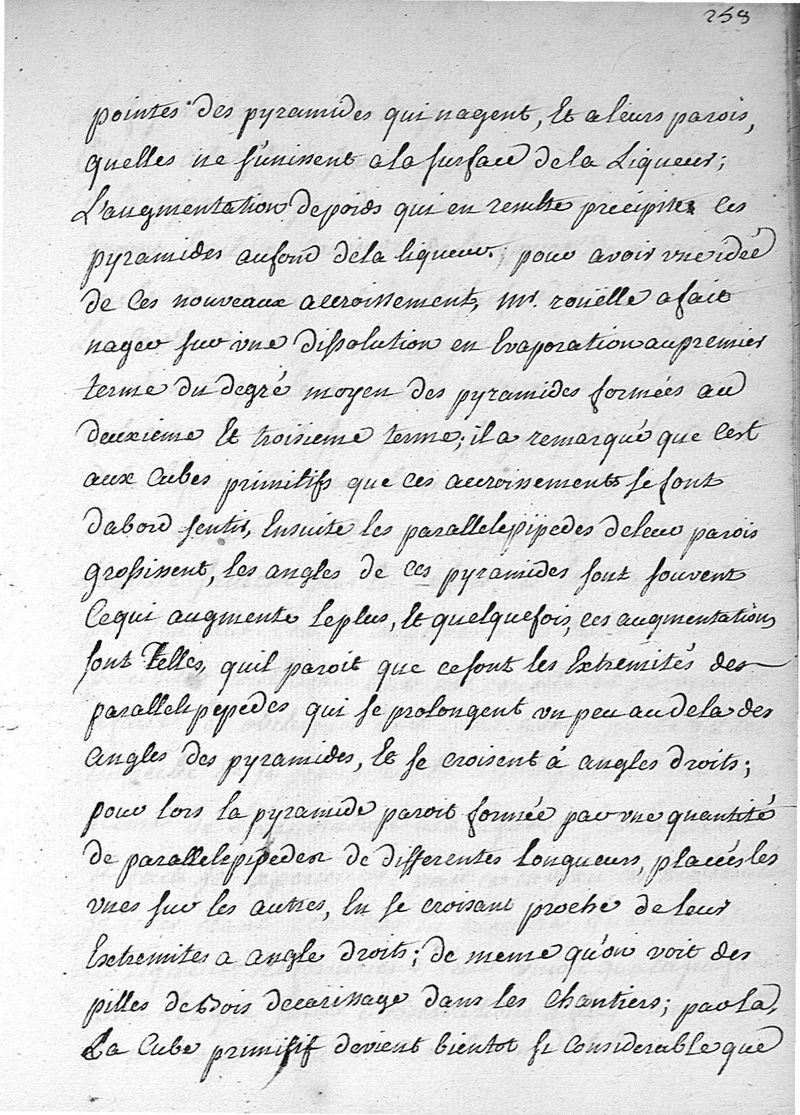 258
pointes des pyramides qui nagent, Et a leurs parois,
quelles ne s'unissent a la surface de la Liqueur;
L'augmentation de poids qui en resulte precipite ces
pyramides au fond de la liqueur. pour avoir vne idée
de Ces nouveaux accroissement, mr. roüelle a fait
nager sur vne dissolution en Evaporation au premier
terme du degré moyen des pyramides formées au
deuxieme Et troisieme terme; il a remarqué que C'est
aux Cubes primitifs que ces accroissements se font
dabord sentir, Ensuite les parallelepipedes de leur parois
grossissent, les angles de ces pyramides sont souvent
Ce qui augmente le plus, Et quelquefois, ces augmentations
sont Telles, quil paroit que ce sont les Extremités des
parallelepepedes qui se prolongent vn peu au dela des
angles des pyramides, Et se croisent à angles droits;
pour lors la pyramide paroit formée par vne quantité
de parallelepipedes de differentes Longueurs, placés les
vnes sur les autres, En se croisant proche de leur
Extremites a angle droits; de meme qu'on voit des
pilles de Bois decarissage dans les Chantiers; par la,
La Cube primitif devient bientot si Considerable que